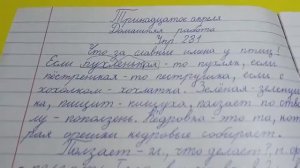 Тринадцатое апреля
Домашняя работа
Упр 231
Что за славные имена у птиц!
Если пухленькая - то пухляк, если
пёстренькая - то пеструшка, если с
хохолком - хохлатка. Зелёная - зеленуш-
ка, пищит - пищуха, ползает по ство-
лу - поползень. Кедровка - это та, кото-
рая орешки кедровые собирает.
Ползает - гл., что делает?